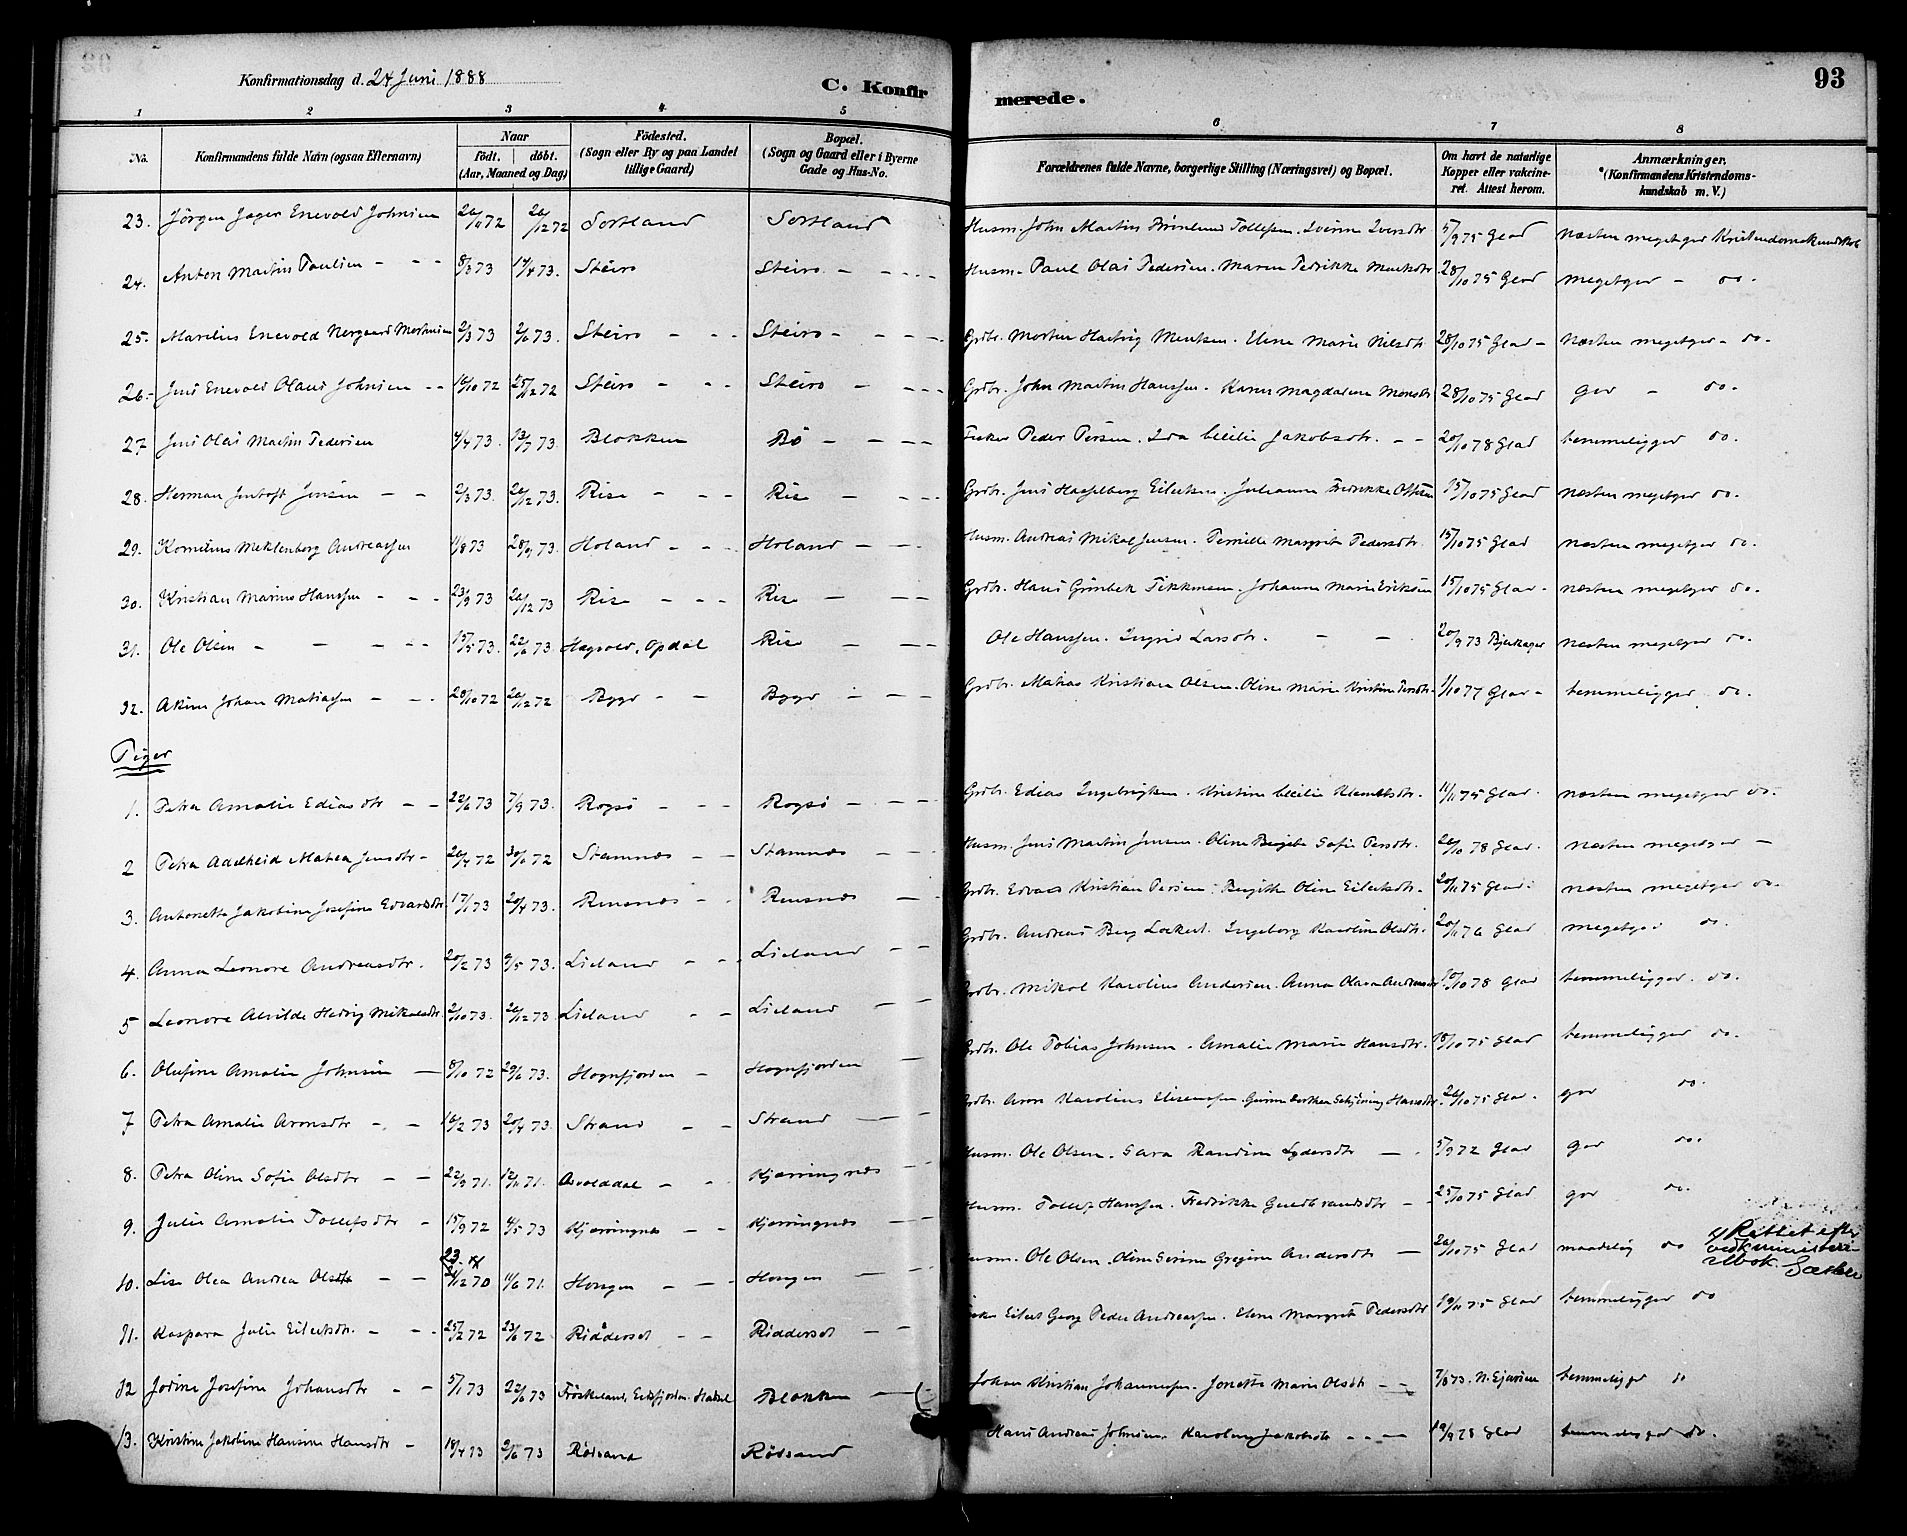 Konfirmationsdag d. 24 Juni 1888
C. Konfirmerede.
93
1 2 3 4 5 6 7 8
No. Konfirmandens fulde Navn (ogsaa Efternavn) Naar födt. döbt. (Aar, Maaned og Dag) Födested. (Sogn eller By og paa Landet tillige Gaard) Bopæl. (Sogn og Gaard eller i Byerne Gade og Hus-No. Forældrenes fulde Navne, borgerlige Stilling (Næringsvei) og Bopæl. Om havt de naturlige Kopper eller vakcineret. Attest herom. Anmærkninger. (Konfirmandens Kristendomskundskab m. V.)
23. Jörgen Jager Enevold Johnsen Sortland Sortland Husm. John Martin 5/9 75 Glad Næsten megetgod Kristendomskundskab
24. Anton Martin Paulsen 8/3 73 14/4 73. Steiro Steiro Husm. Paul Olai Pedersen. 28/10 75 Glad megetgod do.
25. Marelius Enevold Nergaard 2/3 73 2/6 73. Steiro Steiro Grdbr. Morten Hartvig Elene Marie Nilsdtr 28/10 75 Glad Næsten megetgod do.
26. Jens Enevold Olaus Johnsen 16/10 72 25/12 72 Steiro Steiro Grdbr. John Martin Hanssen. Karen Magdalene Monsdtr 28/10 75 Glad god do.
27 Jens Olai Martin Pedersen 4/4 73. 13/7 73. Blokken Bö Peder Persen. Ida Cecilie Jakobsdtr. 20/10 78 Glad temmeliggod do.
28. Herman Jentoft Jensen 2/3 73. 26/12 73. Rise Rise Grdbr. Jens Hasselberg Eilertsen. Julianna Fredrikke 15/10 75 Glad næsten megetgod do.
29. Kornelius Meklenborg Andreassen 11/8 73 28/9 73. Holand Holand Husm. Andreas Mikal Jensen. Pernille Margrit Pedersdtr. 15/10 75 Glad næsten megetgod do.
30. Kristian Marius Hanssen 23/9 73 26/12 73 Rise Rise Grdbr. Hans Grönbek Johanna Marie Eriksen 15/10 75 Glad næsten megetgod do.
31. Ole Olsen 15/5 73. 22/6 73 Opdal Rise Ole Hanssen. Ingrid Larsdtr. 20/9 73 næsten megetgod do.
32. Akim Johan Matiassen 28/10 72 26/12 72 Bygd Bygd Grdbr. Matias Kristian Olsen. Oline Marie Kristine 1/10 77 Glad temmeliggod do.
Piger
1. Petra Amalie Ediasdtr 22/6 73 7/9 73. Rogsö Rogsö Grdbr. Edias Ingebrigtsen. Kristine Cecilie Klemetsdtr. 11/11 75 Glad. næsten megetgod do.
2 Petra Adelheid Matea Jensdtr 26/4 72 30/6 72 Stamnæs Stamnæs Husm. Jens Martin Jensen. Oline Birgitte Sofie Persdtr. 26/10 78 Glad. næsten megetgod
3. Antonette Jakobine Josefine Edvardsdtr. 17/1 73 20/4 73. Reinsnæs Reinsnæs Grdbr. Edvard Kristian Persen. Birgitte Oline Eilertsdtr. 20/11 75 Glad. næsten megetgod do.
4. Anna Leonore Andreasdtr. 20/2 73 9/5 73. Lieland Lieland Grdbr. Andreas Berg Lockert. Ingeborg Karoline Olsdtr. 20/11 76 Glad megetgod do.
5 Leonore Alvilde Hedvig Mikalsdtr. 2/10 73. 26/12 73 Lieland Lieland Grdbr. Mikal Karolius Andersen. Anna Olava 10/10 78 Glad temmeliggod. do.
6. Olufine Amalie Johnsen 8/10 72 29/6 73. Hognfjorden Hognfjorden Grdbr. Ole Tobias Johnsen. Amalie Marie Hansdtr. 18/10 75 Glad temmeliggod do.
7 Petra Amalie Aronsdtr 16/2 73 20/4 73. Strand Strand Grdbr. Aron Karolius Hansdtr. 26/10 75 Glad. god do.
8. Petra Oline Sofie Olsdtr 22/9 71. 12/11 71. Osvolddal Kjærringnæs Husm. Ole Olsen. Sara Randine Lydersdtr 5/9 72 Glad god do.
9. Julie Amalie Tollefsdtr 15/9 72 4/5 73 Kjærringnæs Kjærringnæs Husm. Tollef Hanssen. Fredrikke 25/10 75 Glad god do.
10. Lise Olea Andrea Olsdtr 23. 21/12 70 11/6 71. Hongen Hongen Husm. Ole Olsen. Andersdtr 26/10 75 Glad maadelig do
Rettet efter ministerialbok.
11. Kaspara Julie Eilertsdtr. 25/2 72 23/6 72 Ridderset Ridderset Eilert Georg Peder Andreassen. Elene Margrit Pedersdtr 19/11 75 Glad temmeliggod do
12 Jodine Josefine Johansdtr 5/1 73 22/6 73 Fröskeland, Eidsfjorden. Hadsel Blokken Johan Kristian Johannessen. Jonette Marie Olsdtr 7/8 73. temmeliggod do
13. Kristine Jakobine Hansine Hansdtr 18/4 73 2/6 73 Rödsand Rödsand Hans Andreas Johnsen. Karoline Jakobsdtr 19/9 78 Glad temmeliggod do.